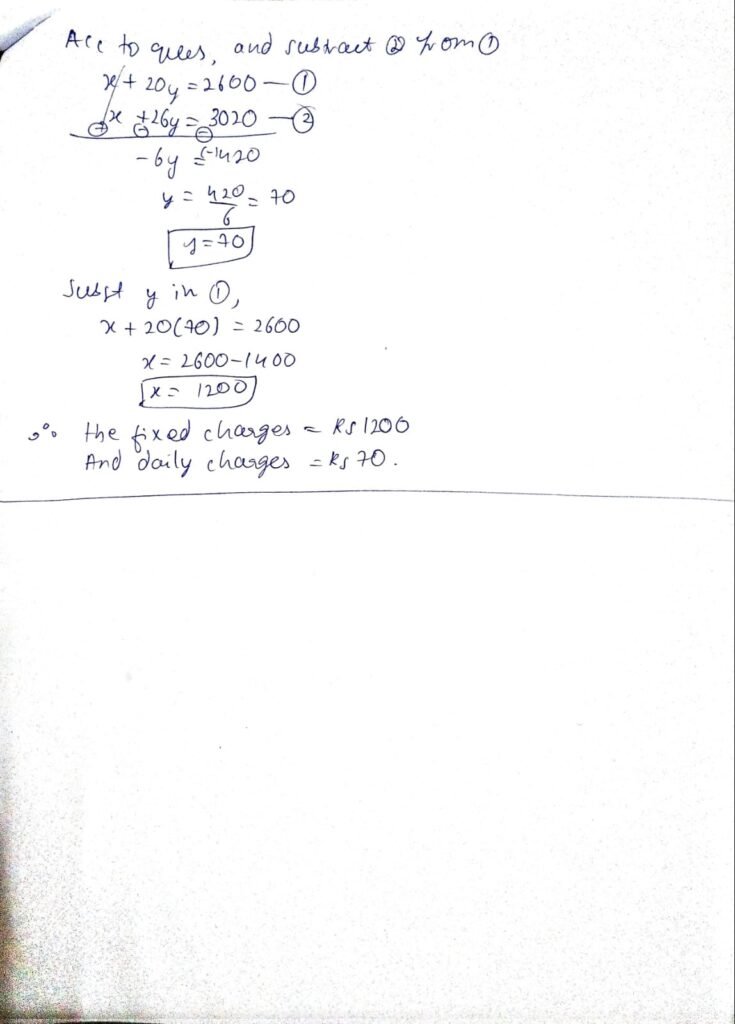 Acc to ques, and subtract ② from ①
x + 20y = 2600 — ①
x + 26y = 3020 — ②
⊖ ⊖ ⊖
- 6y = -420
y = 420/6 = 70
y = 70
Subst y in ①,
x + 20(70) = 2600
x = 2600-1400
x = 1200
∴ the fixed charges = Rs 1200
And daily charges = Rs 70.